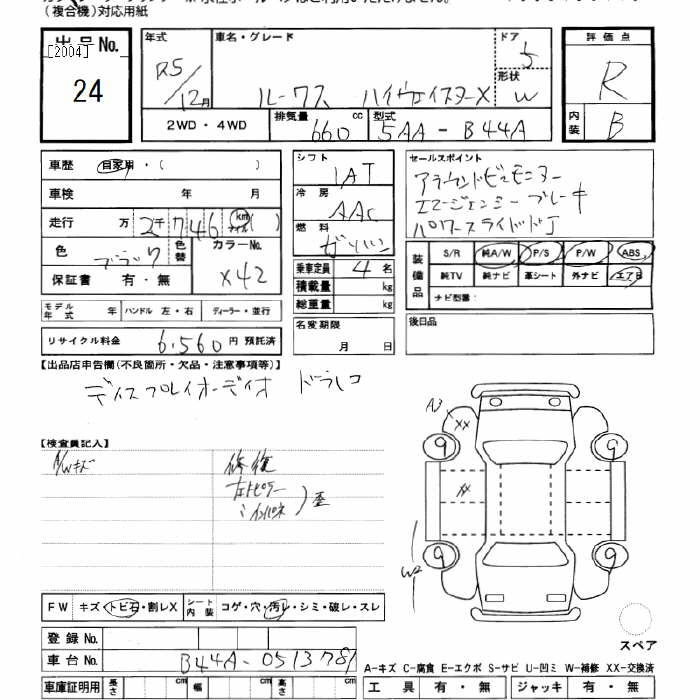 (複合機)対応用紙
出品No.
[2004]
24
年式
R5/12月
車名・グレード
ルークス ハイウェイスターX
ドア
5
形状
W
評価点
R
内装
B
2WD・4WD
排気量
660
cc
型式
5AA-B44A
車歴
自家用・( )
車検 年 月
走行 万 2千746 km マイル ( )
色
ブラック
色替
カラーNo.
X42
保証書 有・無
シフト
IAT
冷房
AAC
燃料
ガソリン
乗車定員 4名
積載量 kg
総重量 kg
名変期限
月 日
セールスポイント
アラウンドビューモニター
エマージェンシーブレーキ
パワースライドドア
装備品
S/R 純A/W P/S P/W ABS
純TV 純ナビ 革シート 外ナビ エアB
ナビ型番:
後日品
モデル年式 年 ハンドル 左・右 ディーラー・並行
リサイクル料金 6,560 円 預託済
【出品店申告欄(不良箇所・欠品・注意事項等)】
ディスプレイオーディオ ドラレコ
【検査員記入】
A/Wキズ
修復
左トピラー
インパネ
歪
A3
XX
9
9
XX
9
9
W2
スペア
FW キズ・トビ石・割レX シート内装 コゲ・穴・汚レ・シミ・破レ・スレ
登録No.
車台No. B44A-0513781
車庫証明用 長さ cm 幅 cm 高さ cm
A-キズ C-腐食 E-エクボ S-サビ U-凹ミ W-補修 XX-交換済
工具 有・無 ジャッキ 有・無